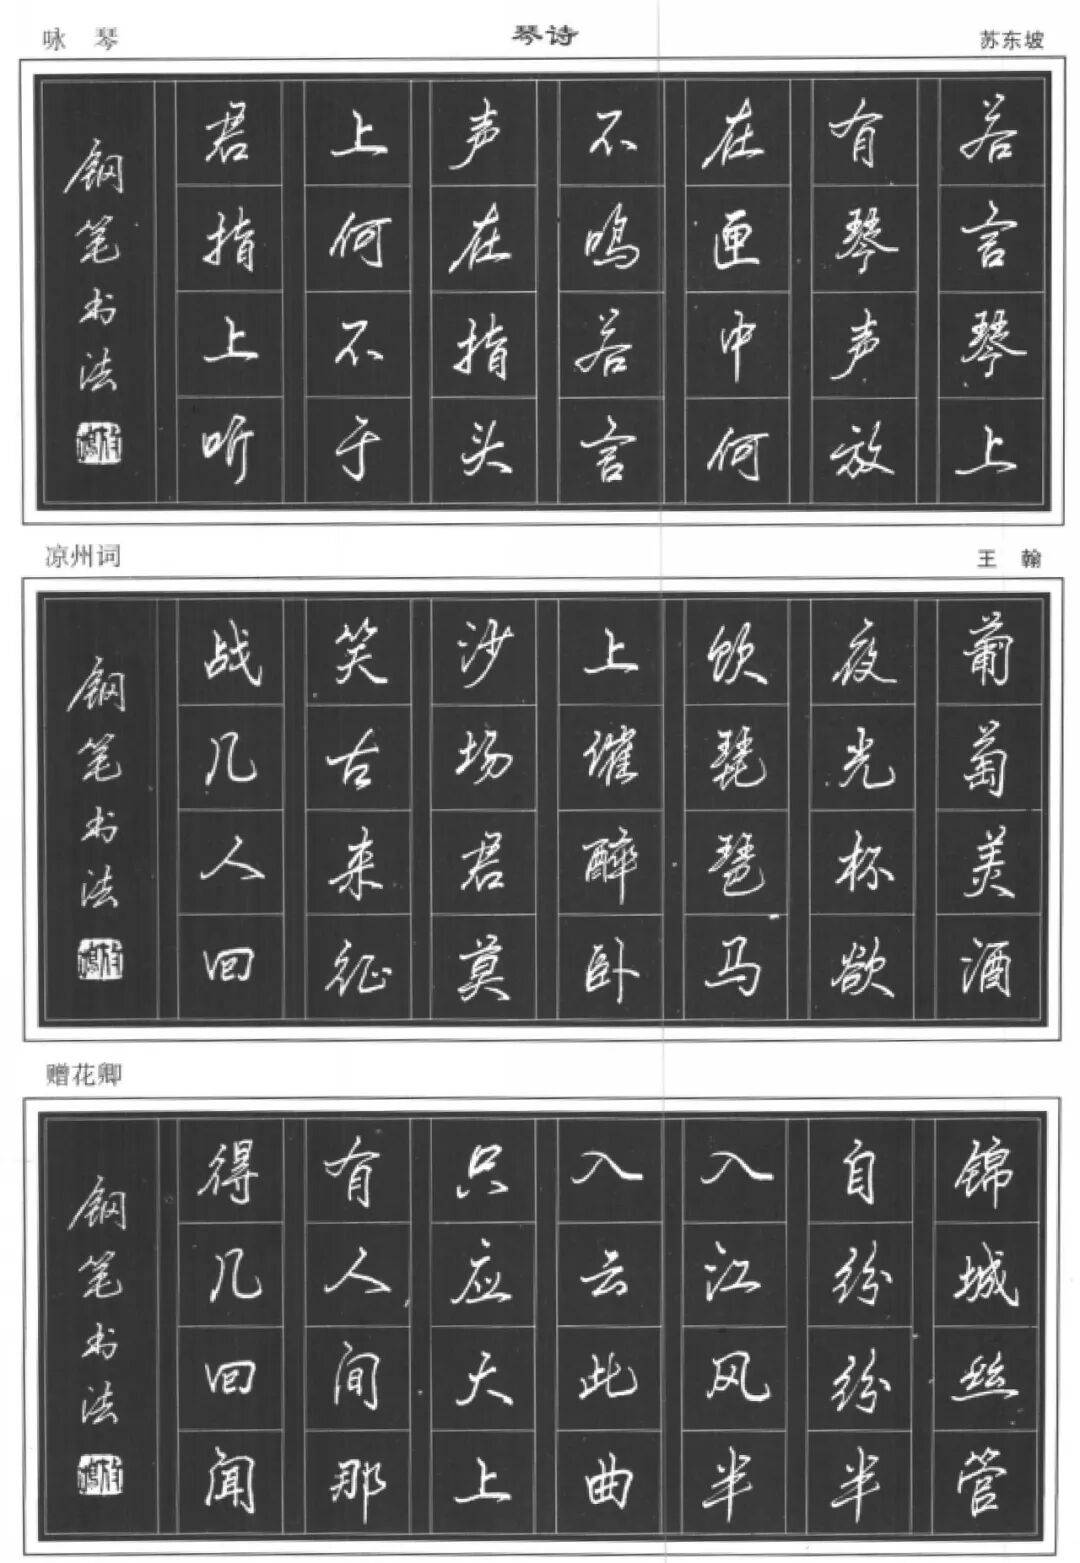 咏 琴 琴诗 苏东坡
若言琴上
有琴声放
在匣中何
不鸣若言
声在指头
上何不于
君指上听
钢笔书法
凉州词 王 翰
葡萄美酒
夜光杯欲
饮琵琶马
上催醉卧
沙场君莫
笑古来征
战几人回
钢笔书法
赠花卿
锦城丝管
自纷纷半
入江风半
入云此曲
只应天上
有人间那
得几回闻
钢笔书法